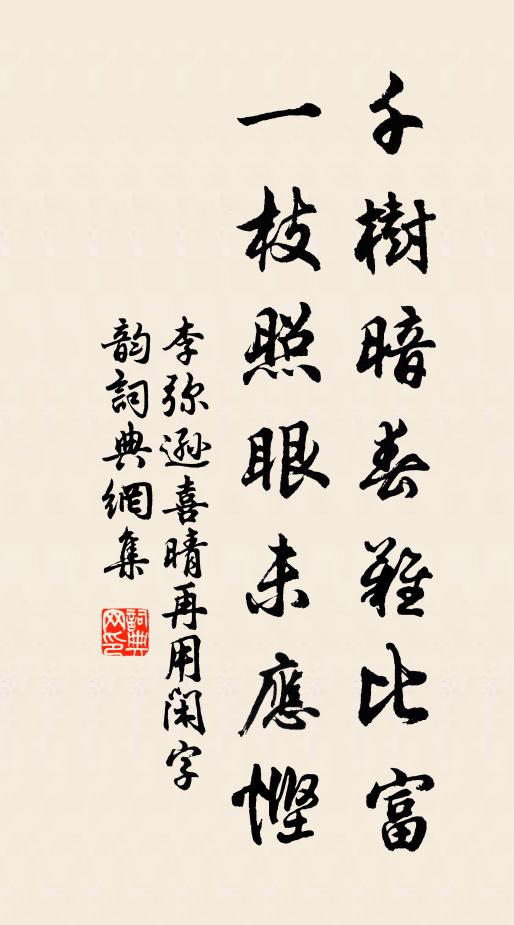 千樹暗春難比富
一枝照眼未應慳
李弥遜喜晴再用閑字韵
詞典網集
詞典
网印